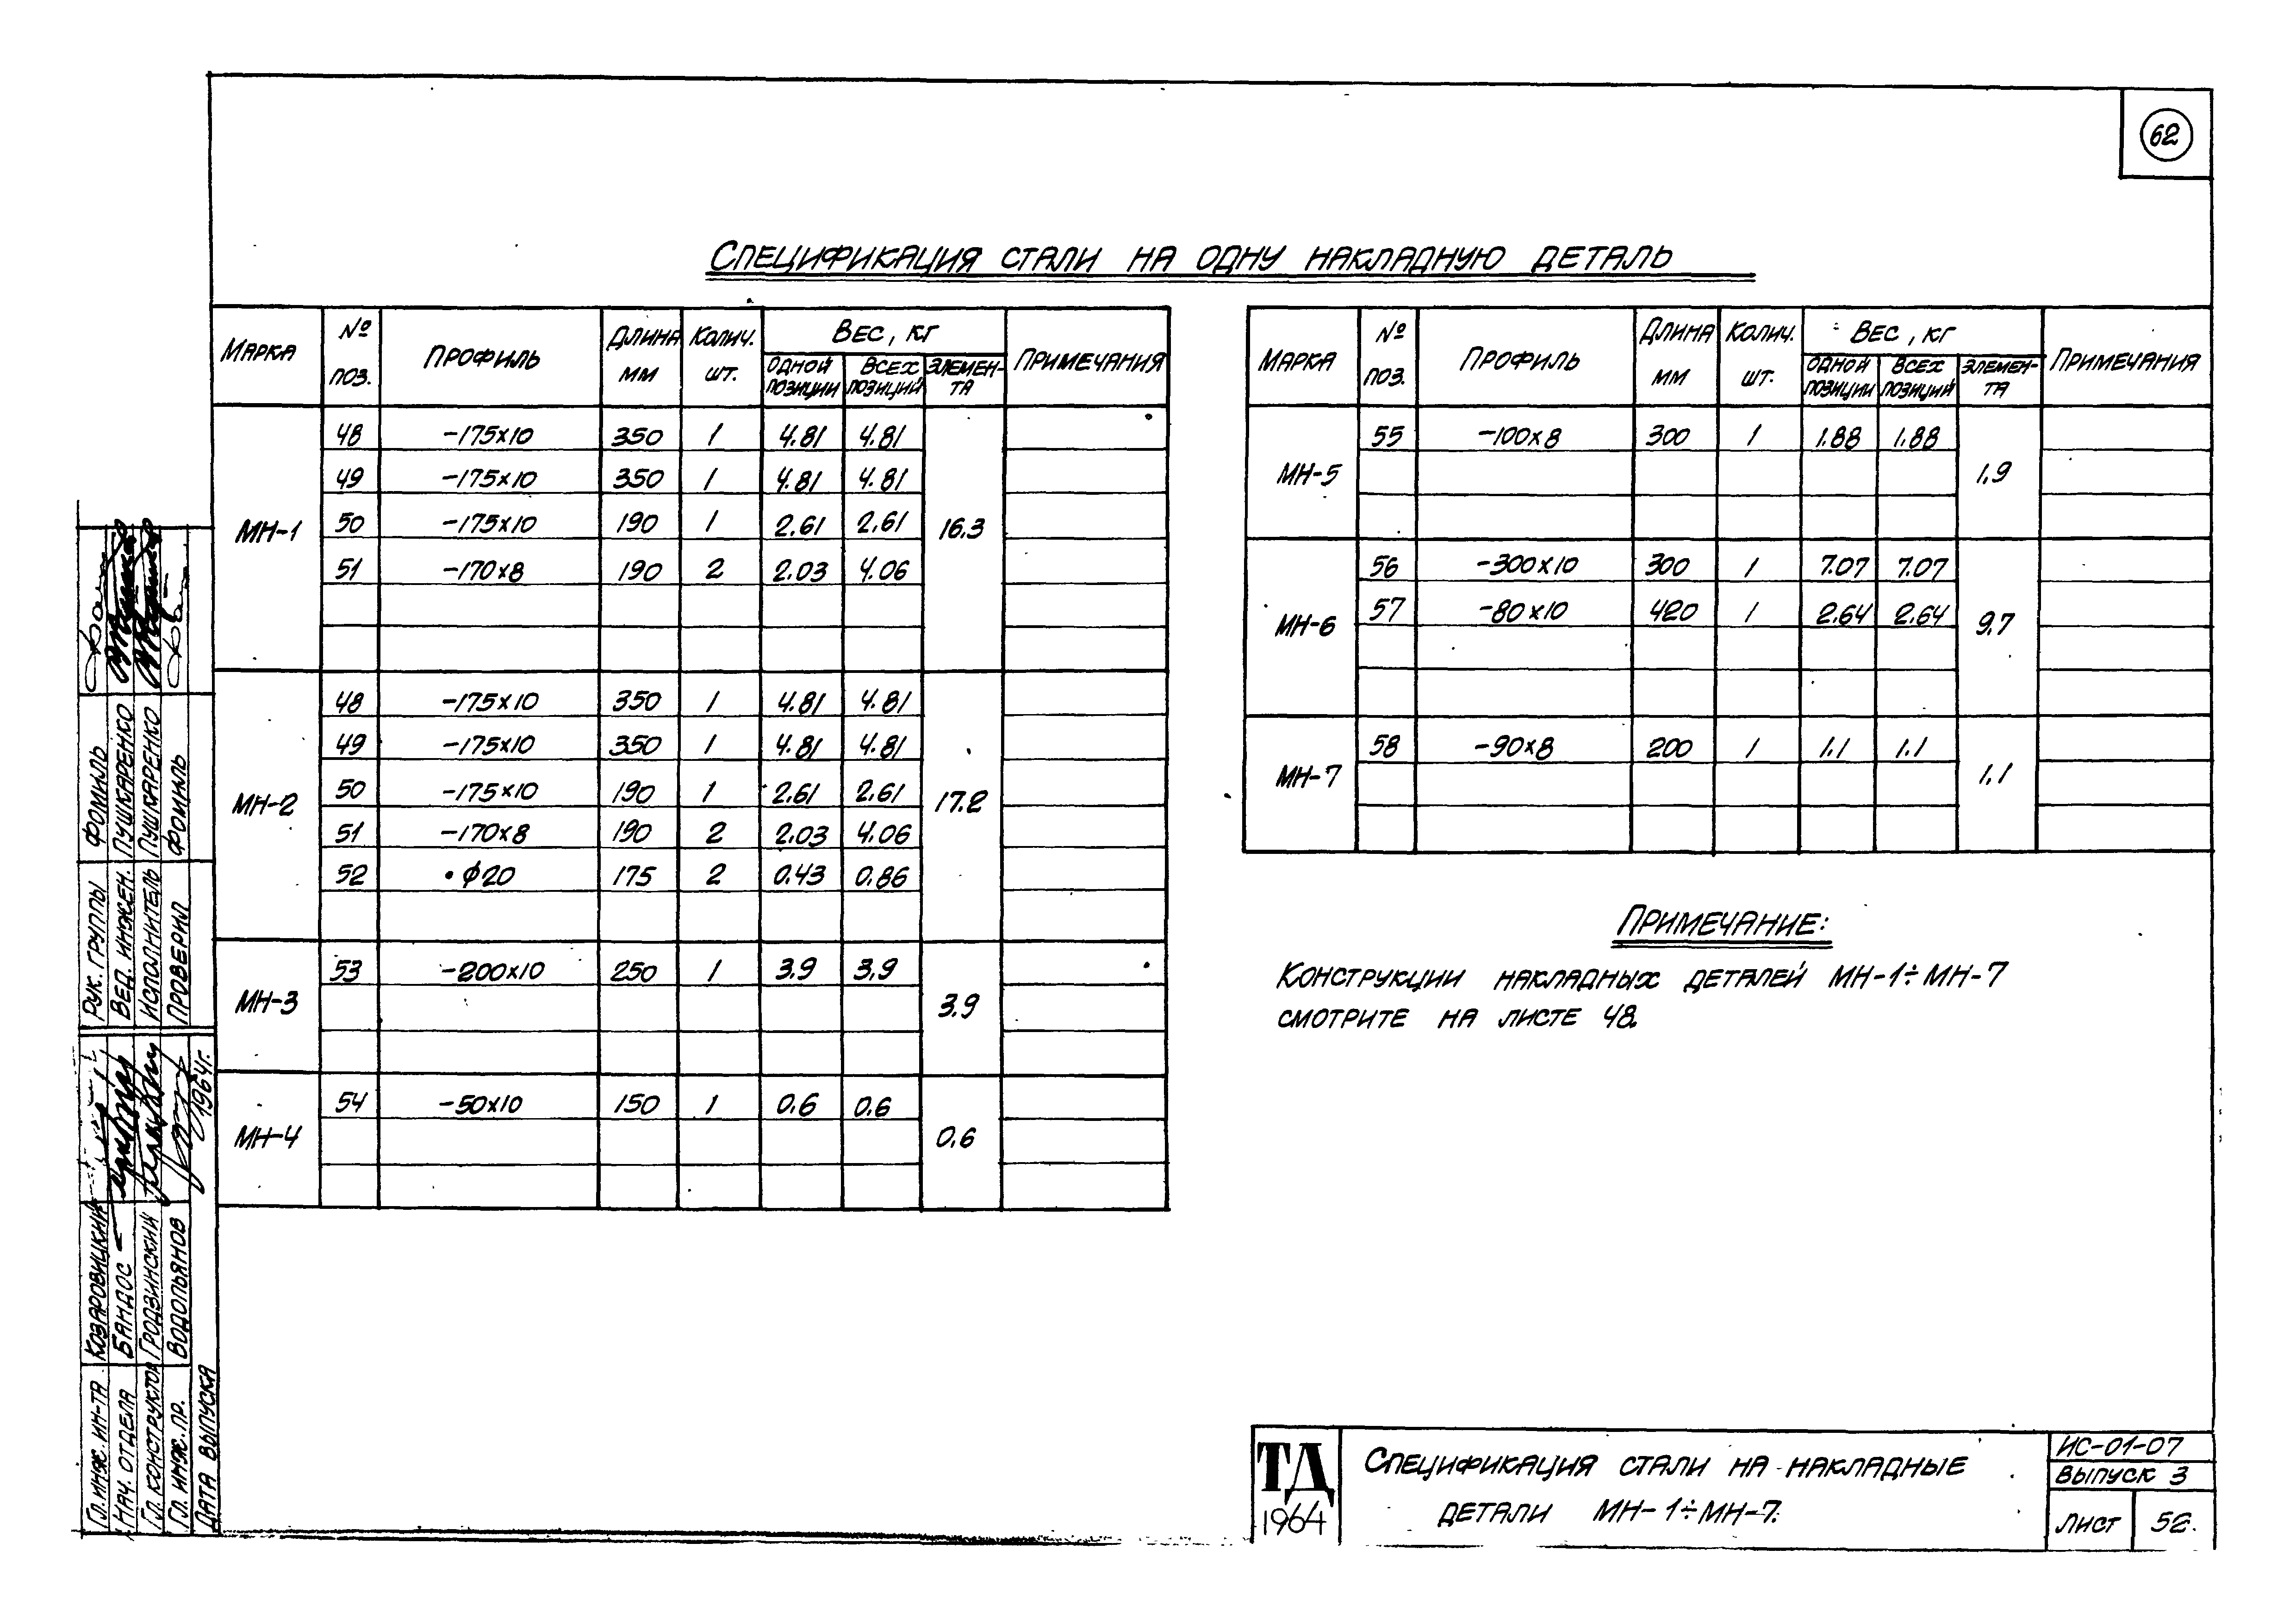 62
Спецификация стали на одну накладную деталь
Марка № поз. Профиль Длина мм Колич. шт. Вес, кг Примечания
одной позиции всех позиций элемен-та
МН-1 16.3
48 -175×10 350 1 4.81 4.81
49 -175×10 350 1 4.81 4.81
50 -175×10 190 1 2.61 2.61
51 -170×8 190 2 2.03 4.06
МН-2 17.2
48 -175×10 350 1 4.81 4.81
49 -175×10 350 1 4.81 4.81
50 -175×10 190 1 2.61 2.61
51 -170×8 190 2 2.03 4.06
52 •ф20 175 2 0.43 0.86
МН-3 3.9
53 -200×10 250 1 3.9 3.9
МН-4 0.6
54 -50×10 150 1 0.6 0.6
Марка № поз. Профиль Длина мм Колич. шт. Вес, кг Примечания
одной позиции всех позиций элемен-та
МН-5 1.9
55 -100×8 300 1 1.88 1.88
МН-6 9.7
56 -300×10 300 1 7.07 7.07
57 -80×10 420 1 2.64 2.64
МН-7 1.1
58 -90×8 200 1 1.1 1.1
Примечание:
Конструкции накладных деталей МН-1÷МН-7
смотрите на листе 48.
Рук. группы Фомиль
Вед. инжен. Пушкаренко
Исполнитель Пушкаренко
Проверил Фомиль
Гл. инж. ин-та Козаровицкий
Нач. отдела Бандос
Гл. конструктор Гродзинский
Гл. инж. пр. Водопьянов
Дата выпуска 1964г.
ТД
1964
Спецификация стали на накладные
детали МН-1÷МН-7.
ИС-01-07
Выпуск 3
Лист 52.